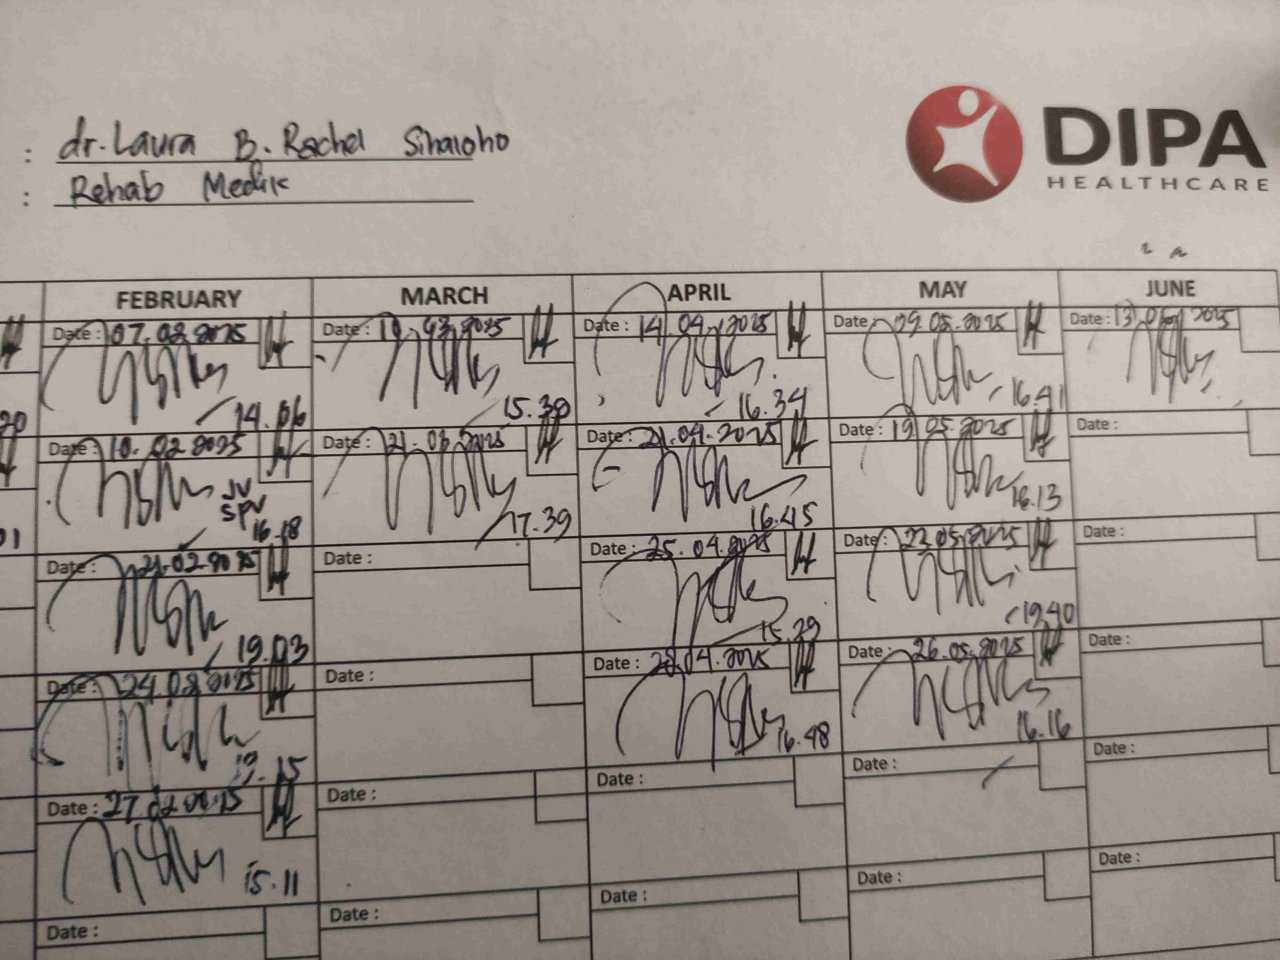 : dr. Laura B. Rachel Sihaloho
: Rehab Medik
DIPA
HEALTHCARE
FEBRUARY MARCH APRIL MAY JUNE
Date : 07.02.2025 Date : 10.03.2025 Date : 14.04.2025 Date : 09.05.2025 Date : 13. 2025
14.06 15.30 16.34 16.41
Date : 10.02.2025 Date : 21.03.2025 Date : 21.04.2025 Date : 19.05.2025 Date :
JV
SPV
16.18 17.39 16.45 16.13
Date : 21.02.2025 Date : Date : 25.04.2025 Date : 22.05.2025 Date :
19.03 15.29 19.40
Date : 24.02.2025 Date : Date : 28.04.2025 Date : 26.05.2025 Date :
19.15 16.48 16.16
Date : 27.02.2025 Date : Date : Date : Date :
15.11
Date : Date : Date : Date : Date :